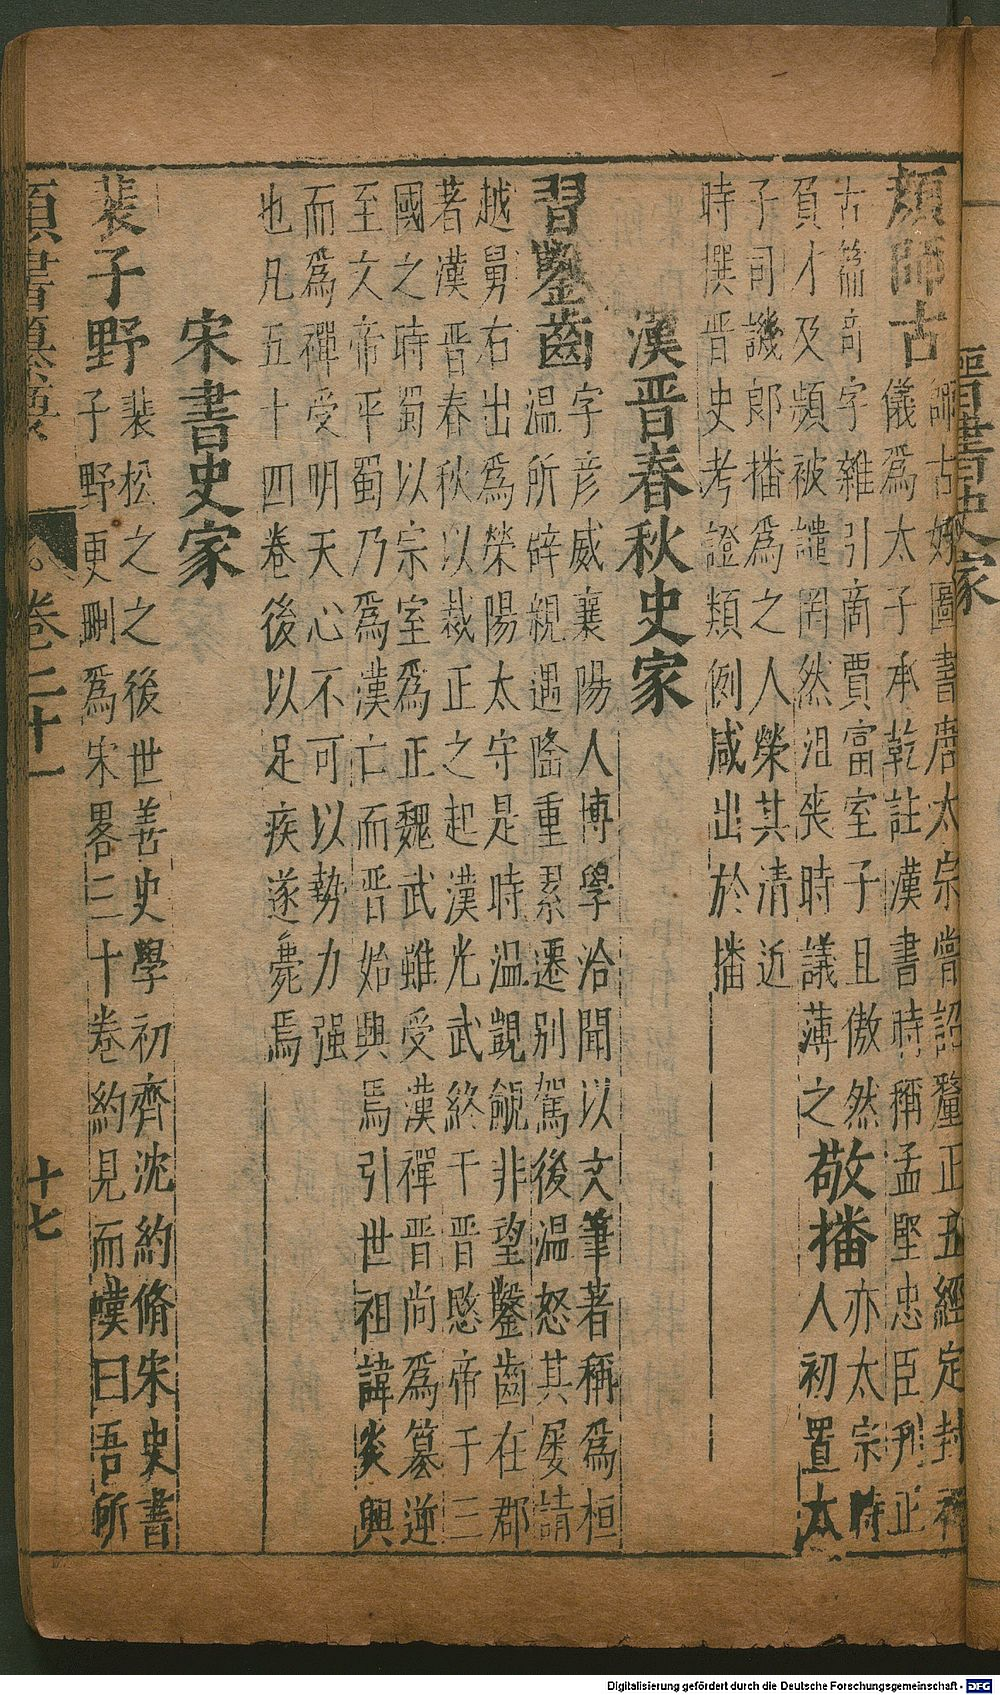 晉書史家
顏師古師古好圖書唐太宗嘗詔釐正五經定封禪
儀爲太子承乾註漢書時稱孟堅忠臣刋正
古篇奇字雜引商賈富室子且傲然敬播亦太宗時
負才及頻被譴罔然沮喪時議薄之人初置太
子司議郎播爲之人榮其清近
時撰晉史考證類例咸出於播
漢晉春秋史家
習鑿齒字彥威襄陽人博學洽聞以文筆著稱爲桓
温所辟親遇隆重累遷别駕後温怒其屡請
越舅右出爲榮陽太守是時温覬覦非望鑿齒在郡
著漢晉春秋以裁正之起漢光武終于晉愍帝于三
國之時蜀以宗室爲正魏武雖受漢禪晉尚爲篡逆
至文帝平蜀乃爲漢亡而晉始興焉引世祖諱炎興
而爲禪受明天心不可以勢力强
也凡五十四卷後以足疾遂薨焉
宋書史家
裴子野裴松之之後世善史學初齊沈約脩宋史書
子野更刪爲宋畧三十卷約見而嘆曰吾所
類書纂要 卷二十一 十七
Digitalisierung gefördert durch die Deutsche Forschungsgemeinschaft - DFG